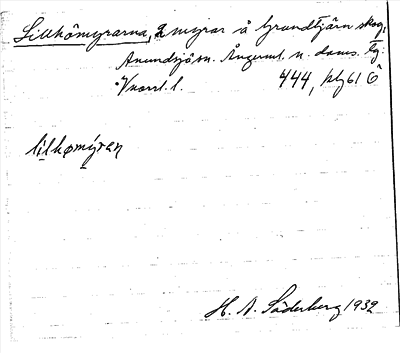 Lillkömyrarna, 2 myrar å Grundtjärn skog,
Anundsjö sn. Ångerml. n. doms. tg.
Vnorrl. l. 444, pl 61 Ô
lilkømýran
H. N. Söderberg 1932